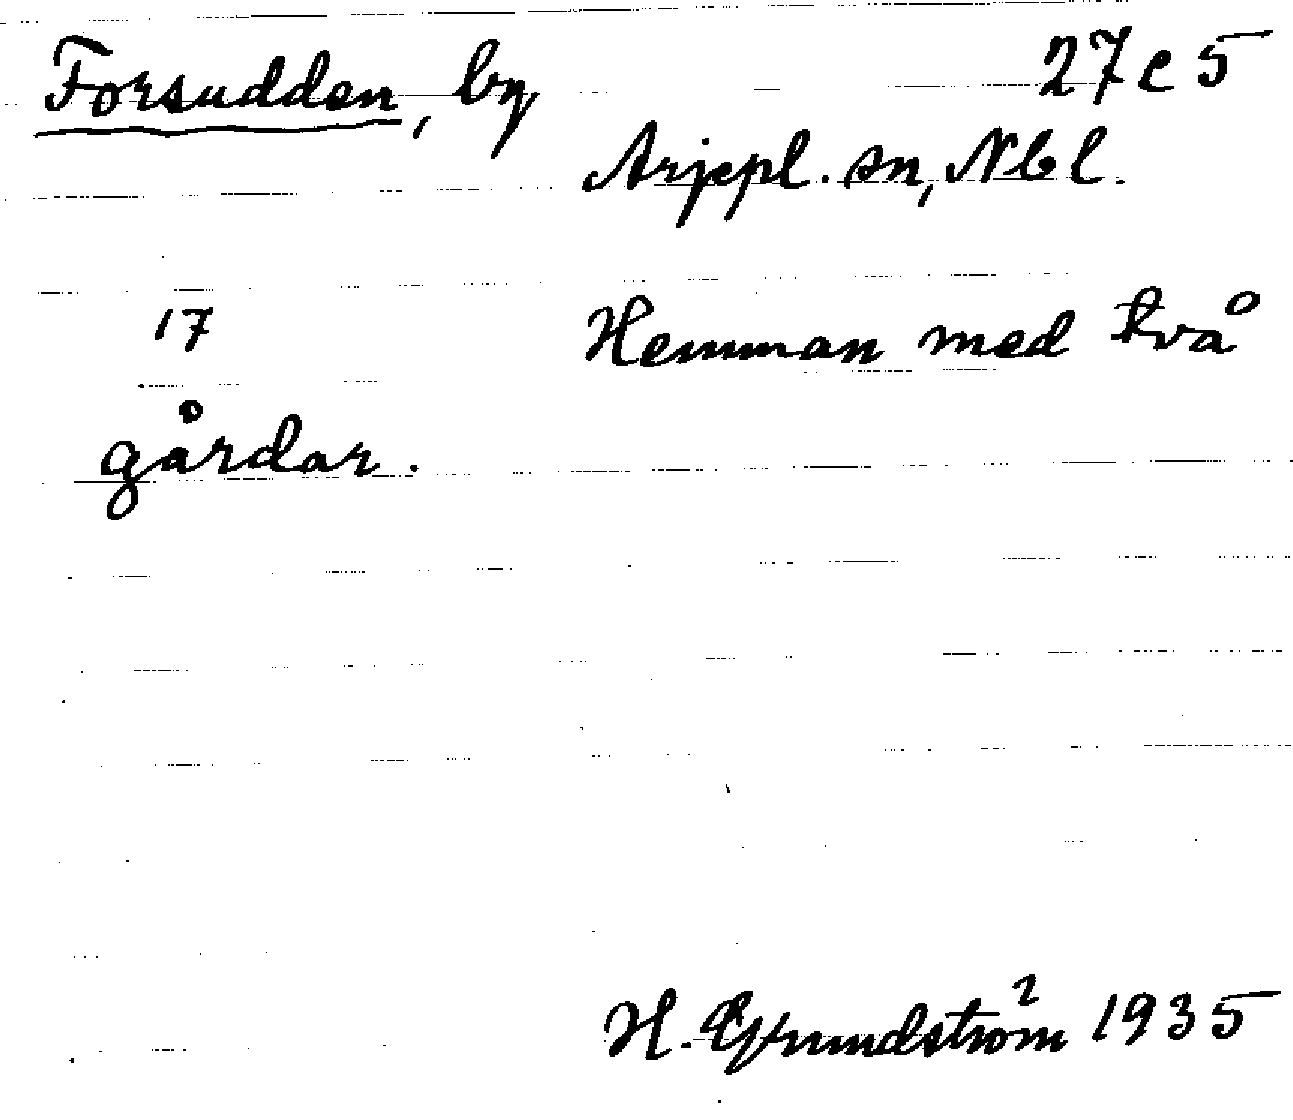 Forsudden, by 27 e 5
Arjepl. sn, Nbl.
17 Hemman med två
gårdar.
H. Grundström 1935